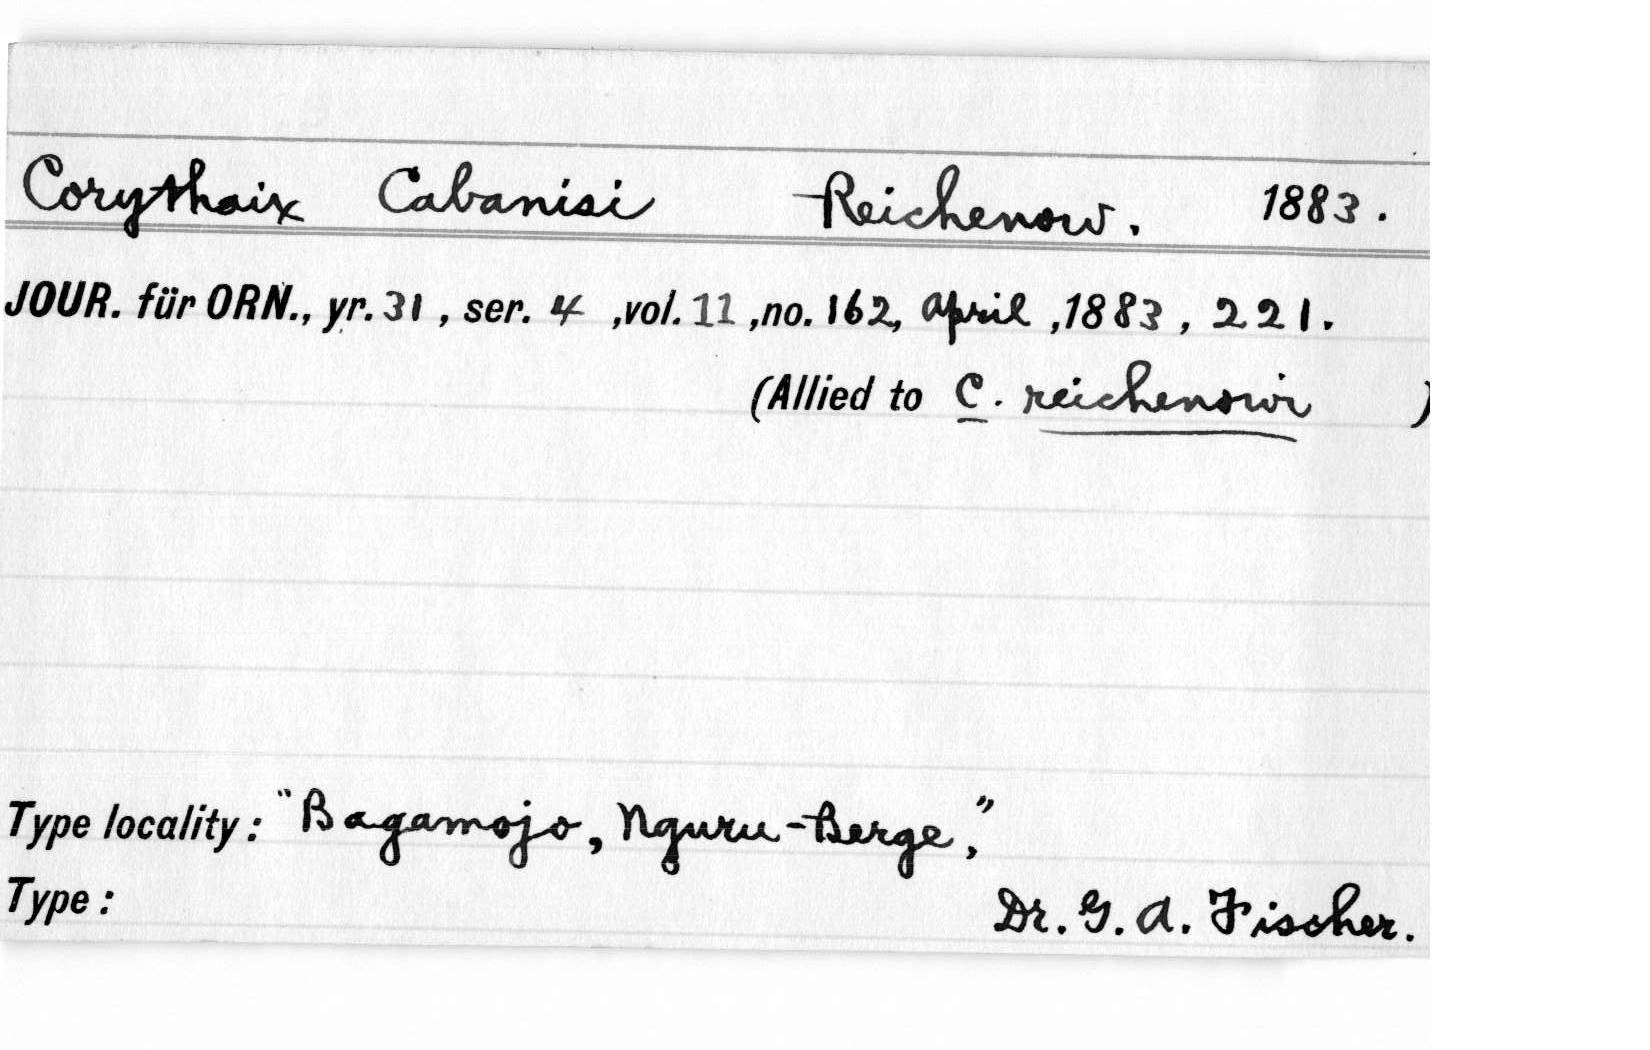 Corythaix Cabanisi Reichenow. 1883.
JOUR. für ORN., yr. 31, ser. 4, vol. 11, no. 162, April, 1883, 221.
(Allied to C. reichenowi )
Type locality: "Bagamojo, Nguru-Berge,"
Type: Dr. G. A. Fischer.